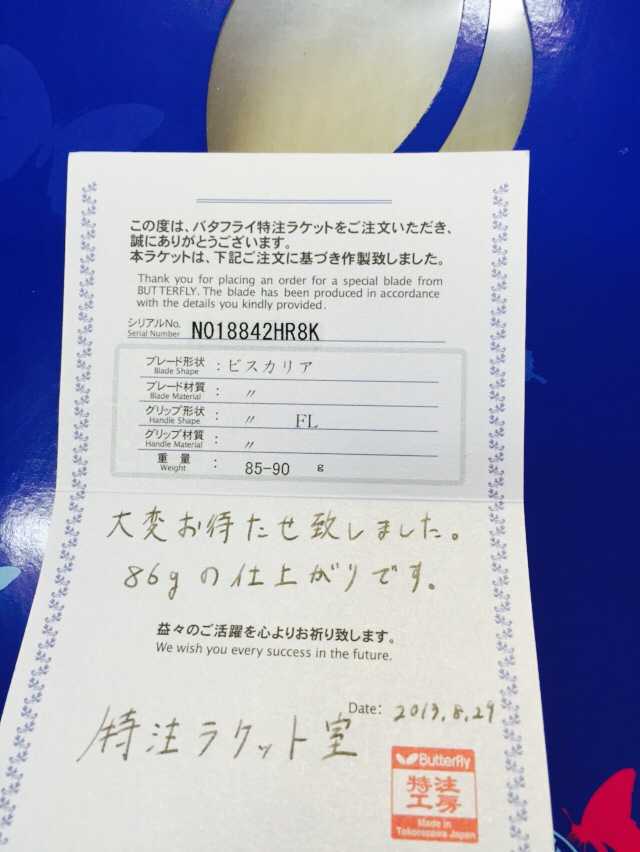 この度は、バタフライ特注ラケットをご注文いただき、
誠にありがとうございます。
本ラケットは、下記ご注文に基づき作製致しました。
Thank you for placing an order for a special blade from
BUTTERFLY. The blade has been produced in accordance
with the details you kindly provided.
シリアルNo.
Serial Number NO18842HR8K
ブレード形状 : ビスカリア
Blade Shape
ブレード材質 : 〃
Blade Material
グリップ形状 : 〃 FL
Handle Shape
グリップ材質 : 〃
Handle Material
重量 : 85-90 g
Weight
大変お待たせ致しました。
86gの仕上がりです。
益々のご活躍を心よりお祈り致します。
We wish you every success in the future.
Date: 2013.8.29
特注ラケット室
Butterfly
特注
工房
Made in
Tokorozawa Japan